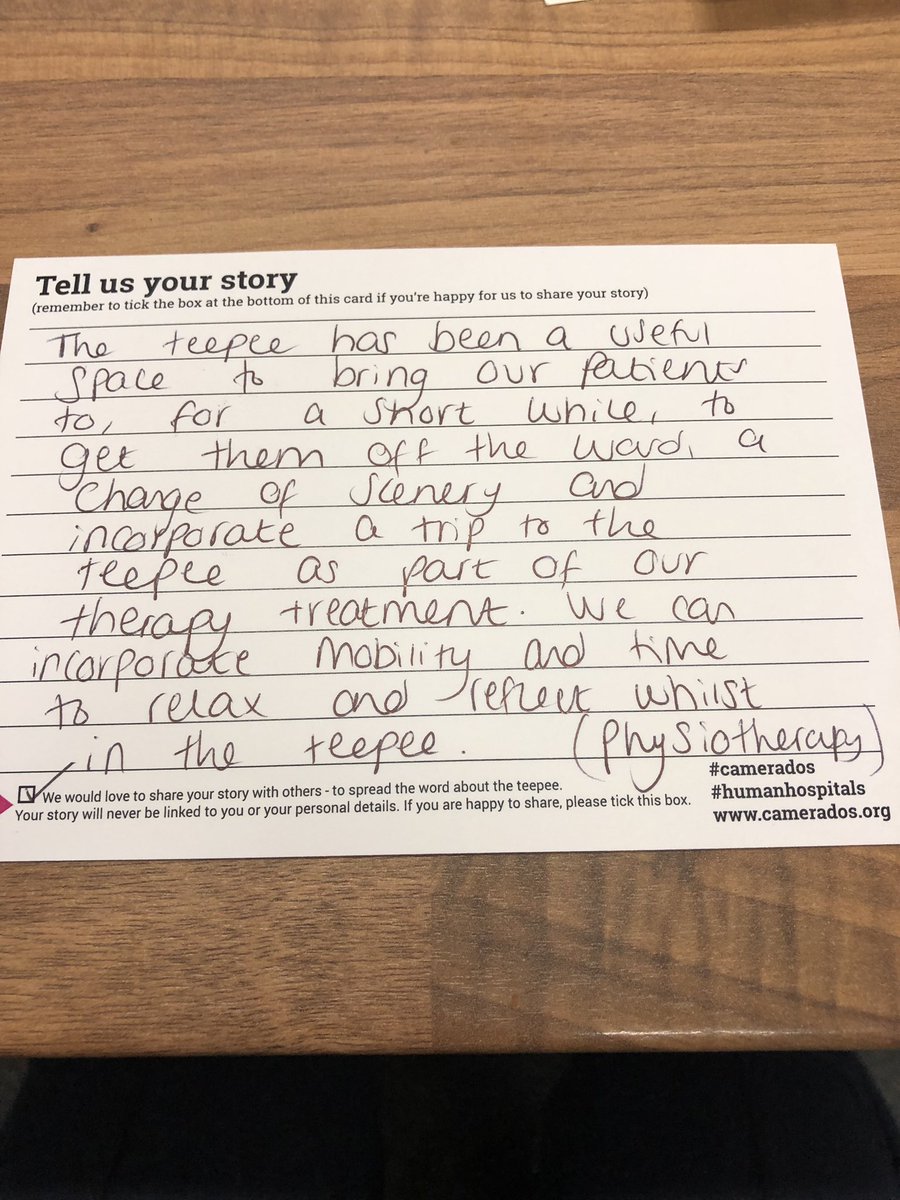 Tell us your story
(remember to tick the box at the bottom of this card if you're happy for us to share your story)
The teepee has been a useful
space to bring our patients
to, for a short while, to
get them off the ward, a
change of scenery and
incorporate a trip to the
teepee as part of our
therapy treatment. We can
incorporate mobility and time
to relax and reflect whilst
in the teepee. (Physiotherapy)
We would love to share your story with others - to spread the word about the teepee.
Your story will never be linked to you or your personal details. If you are happy to share, please tick this box.
#camerados
#humanhospitals
www.camerados.org